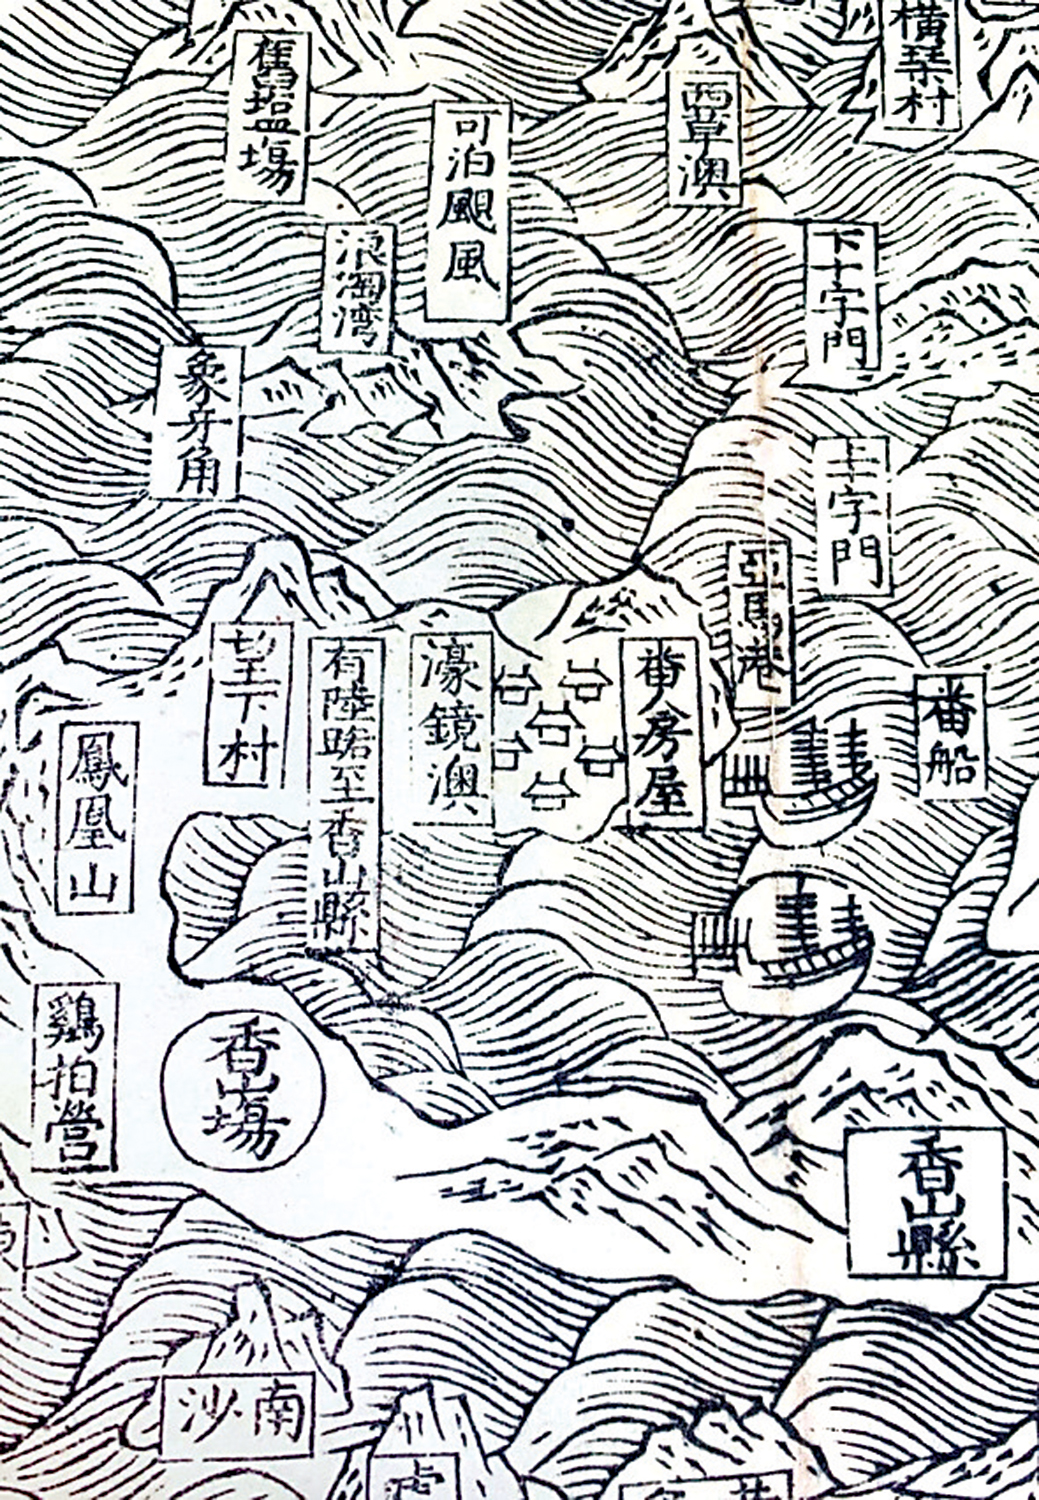 橫琴村
西草澳
可泊颶風
舊鹽塲
下十字門
浪淘湾
象牙角
十字門
亞馬港
番船
番人房屋
濠鏡澳
有陸路至香山縣
望下村
鳳凰山
鷄拍營
香山塲
香山縣
南沙